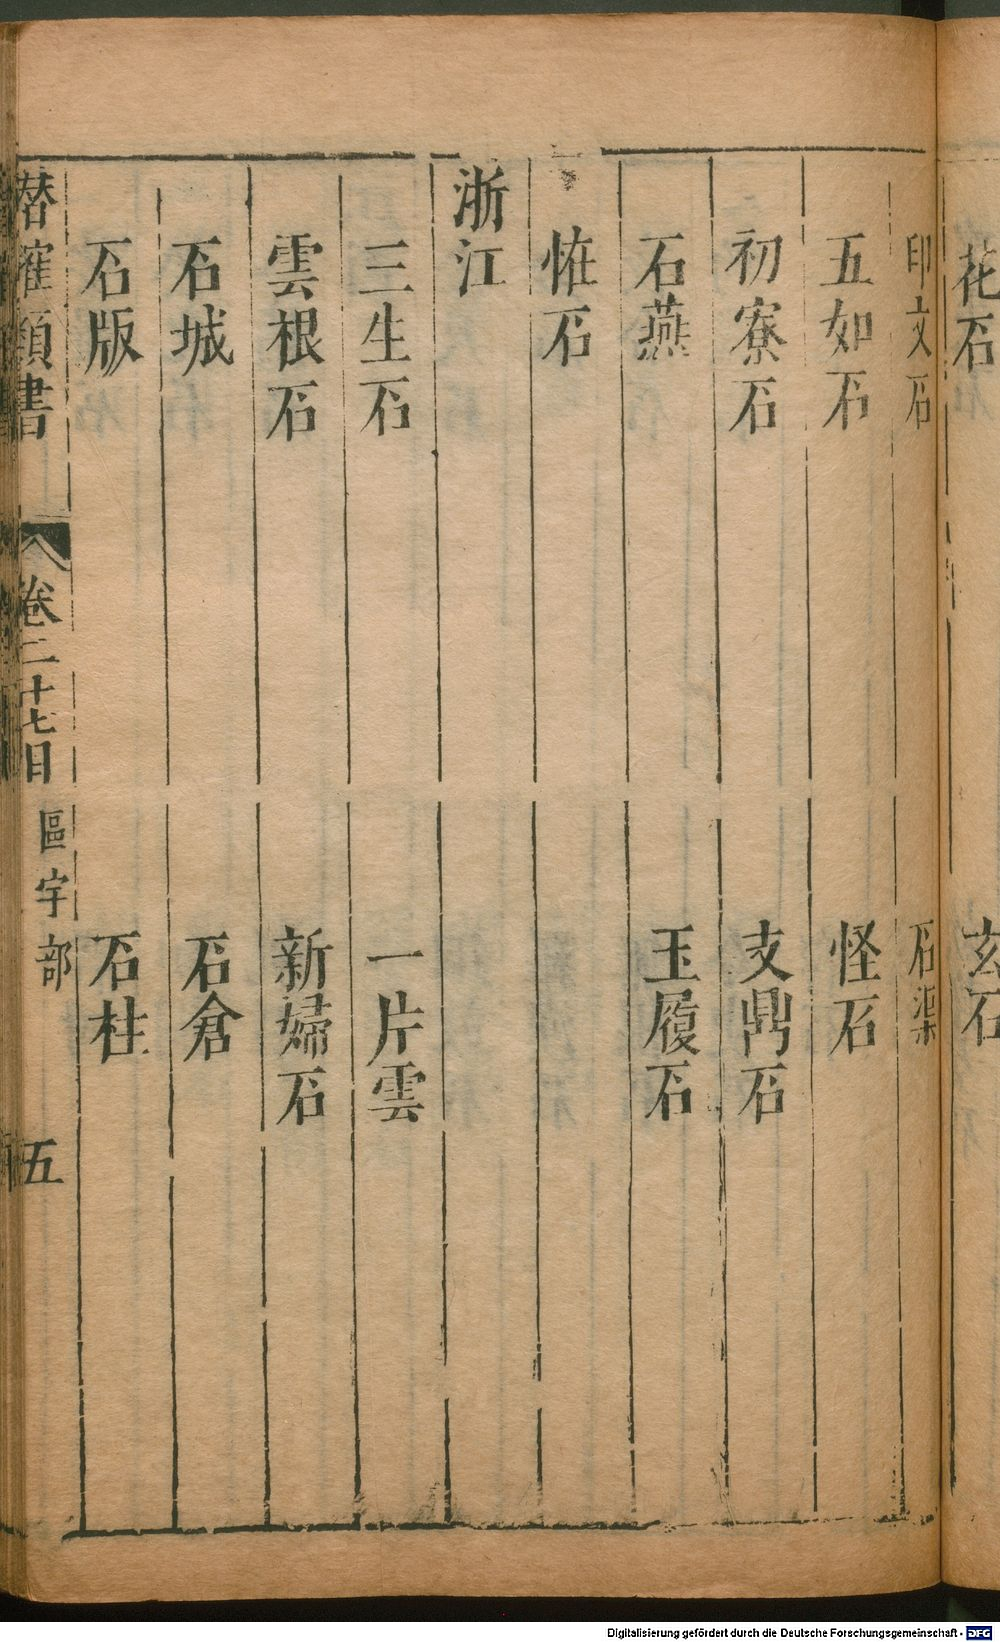 花石　玄石
印文石　石渠
五如石　怪石
初寮石　支鼎石
石燕　玉履石
恠石
浙江
三生石　一片雲
雲根石　新婦石
石城　石倉
石版　石柱
類書　卷二十七目　區宇部　五
Digitalisierung gefördert durch die Deutsche Forschungsgemeinschaft - DFG